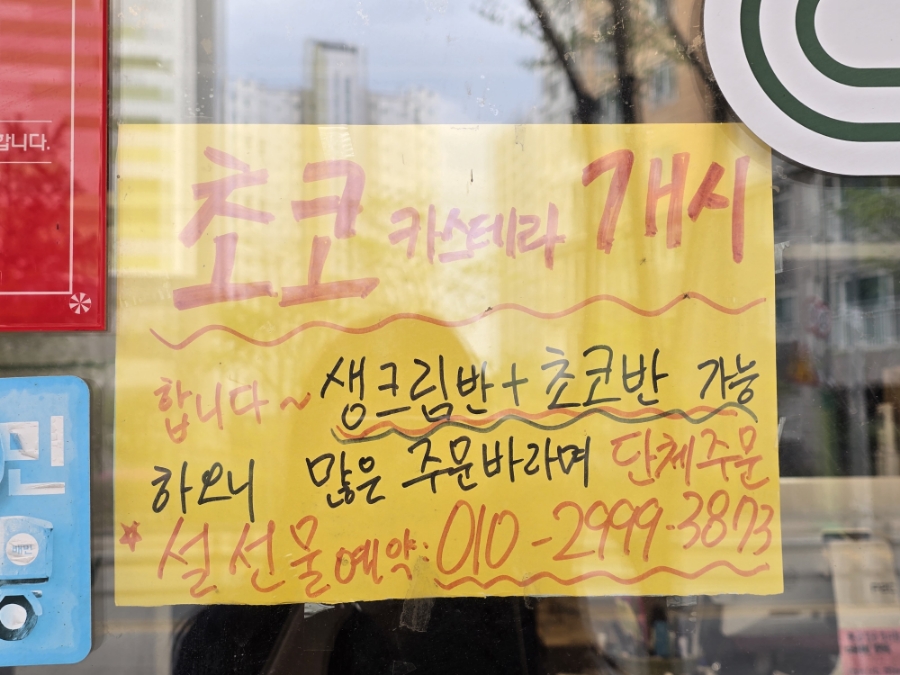 합니다.
초코 카스테라 개시
합니다~ 생크림반+초코반 가능
하오니 많은 주문바라며 단체주문
*설 선물 예약:010-2999-3873